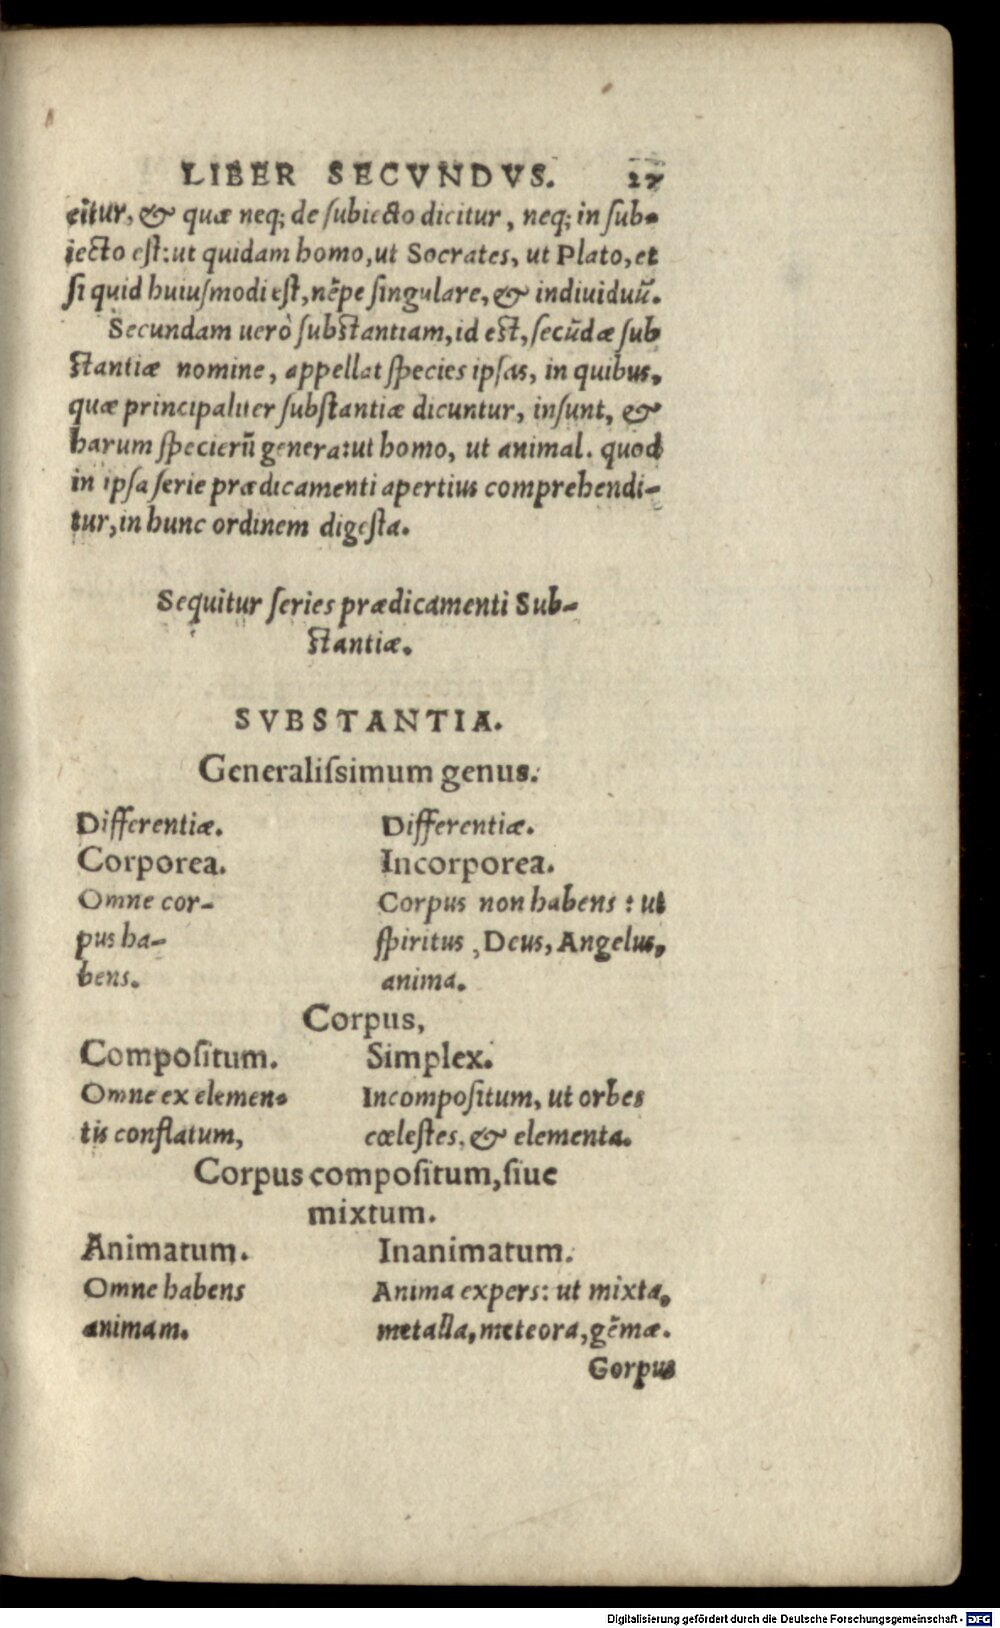 LIBER SECVNDVS. 27
citur, & quæ neq; de ſubiecto dicitur, neq; in ſub-
iecto eſt: ut quidam homo, ut Socrates, ut Plato, et
ſi quid huiuſmodi eſt, nẽpe ſingulare, & indiuiduũ.
Secundam uerò ſubſtantiam, id eſt, ſecũdæ ſub
ſtantiæ nomine, appellat ſpecies ipſas, in quibus,
quæ principaliter ſubſtantiæ dicuntur, inſunt, &
harum ſpecierũ genera: ut homo, ut animal. quod
in ipſa ſerie prædicamenti apertius comprehendi-
tur, in hunc ordinem digeſta.
Sequitur ſeries prædicamenti Sub-
ſtantiæ.
SVBSTANTIA.
Generaliſsimum genus.
Differentiæ. Differentiæ.
Corporea. Incorporea.
Omne cor- Corpus non habens: ut
pus ha- ſpiritus, Deus, Angelus,
bens. anima.
Corpus,
Compoſitum. Simplex.
Omne ex elemen- Incompoſitum, ut orbes
tis conflatum, cœleſtes, & elementa.
Corpus compoſitum, ſiue
mixtum.
Animatum. Inanimatum.
Omne habens Anima expers: ut mixta,
animam. metalla, meteora, gẽmæ.
Corpus
Digitalisierung gefördert durch die Deutsche Forschungsgemeinschaft - DFG